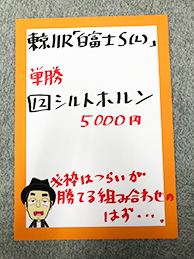 東京11R「白富士S(L)」
単勝
12 シルトホルン
5000円
大外枠はつらいが
勝てる組み合わせの
はず...